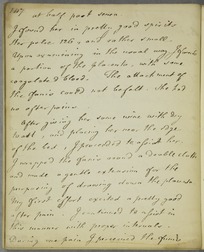 at half past seven
I found her in pretty good spirits
Her pulse 126, and rather small
Upon examining in the usual way I found
a portion of the Placenta, with some
coagulated blood. The attachment of
the funis could not be felt. She had
no after pains
After giving her some wine with dry
toast, and placing her near the edge
of the bed, I proceeded to assist her
I wrapped the funis round a double cloth
and made a gentle extension for the
purpose of drawing down the placenta
My first effort excited a pretty good
after pain. I continued to assist in
this manner with proper intervals
During one pain I pressed the funis